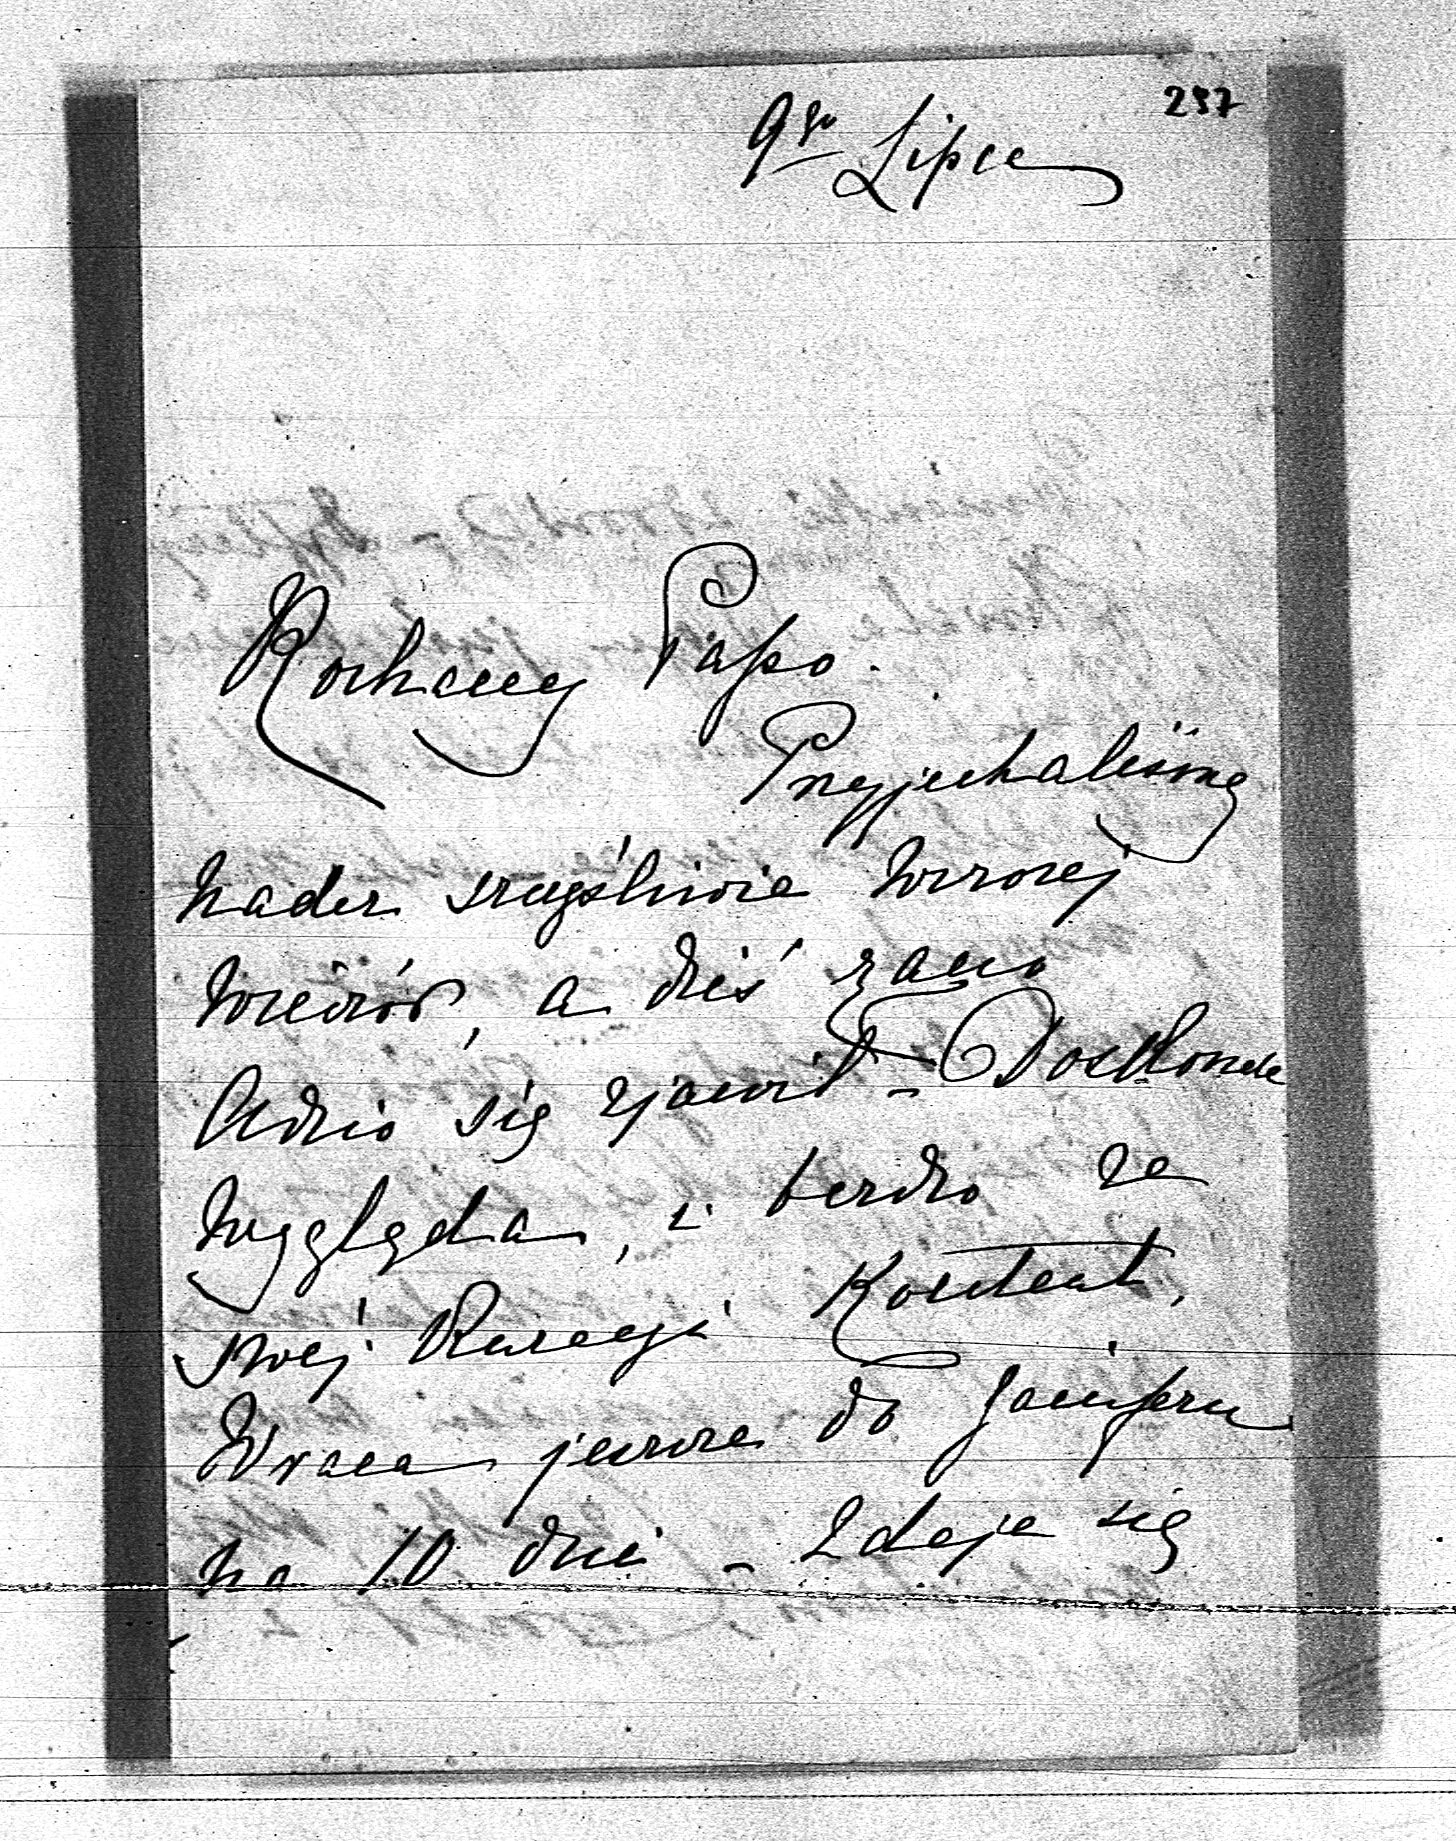 257
9go Lipca
Kochany Papo.
Przyjechaliśmy
nader szczęśliwie wczoraj
wieczór, a dziś rano
Adzio się zjawił – Doskonale
wygląda, i bardzo ze
swej Kuracyi Kontent,
Wraca jeszcze do
na 10 dni – Zdaje się